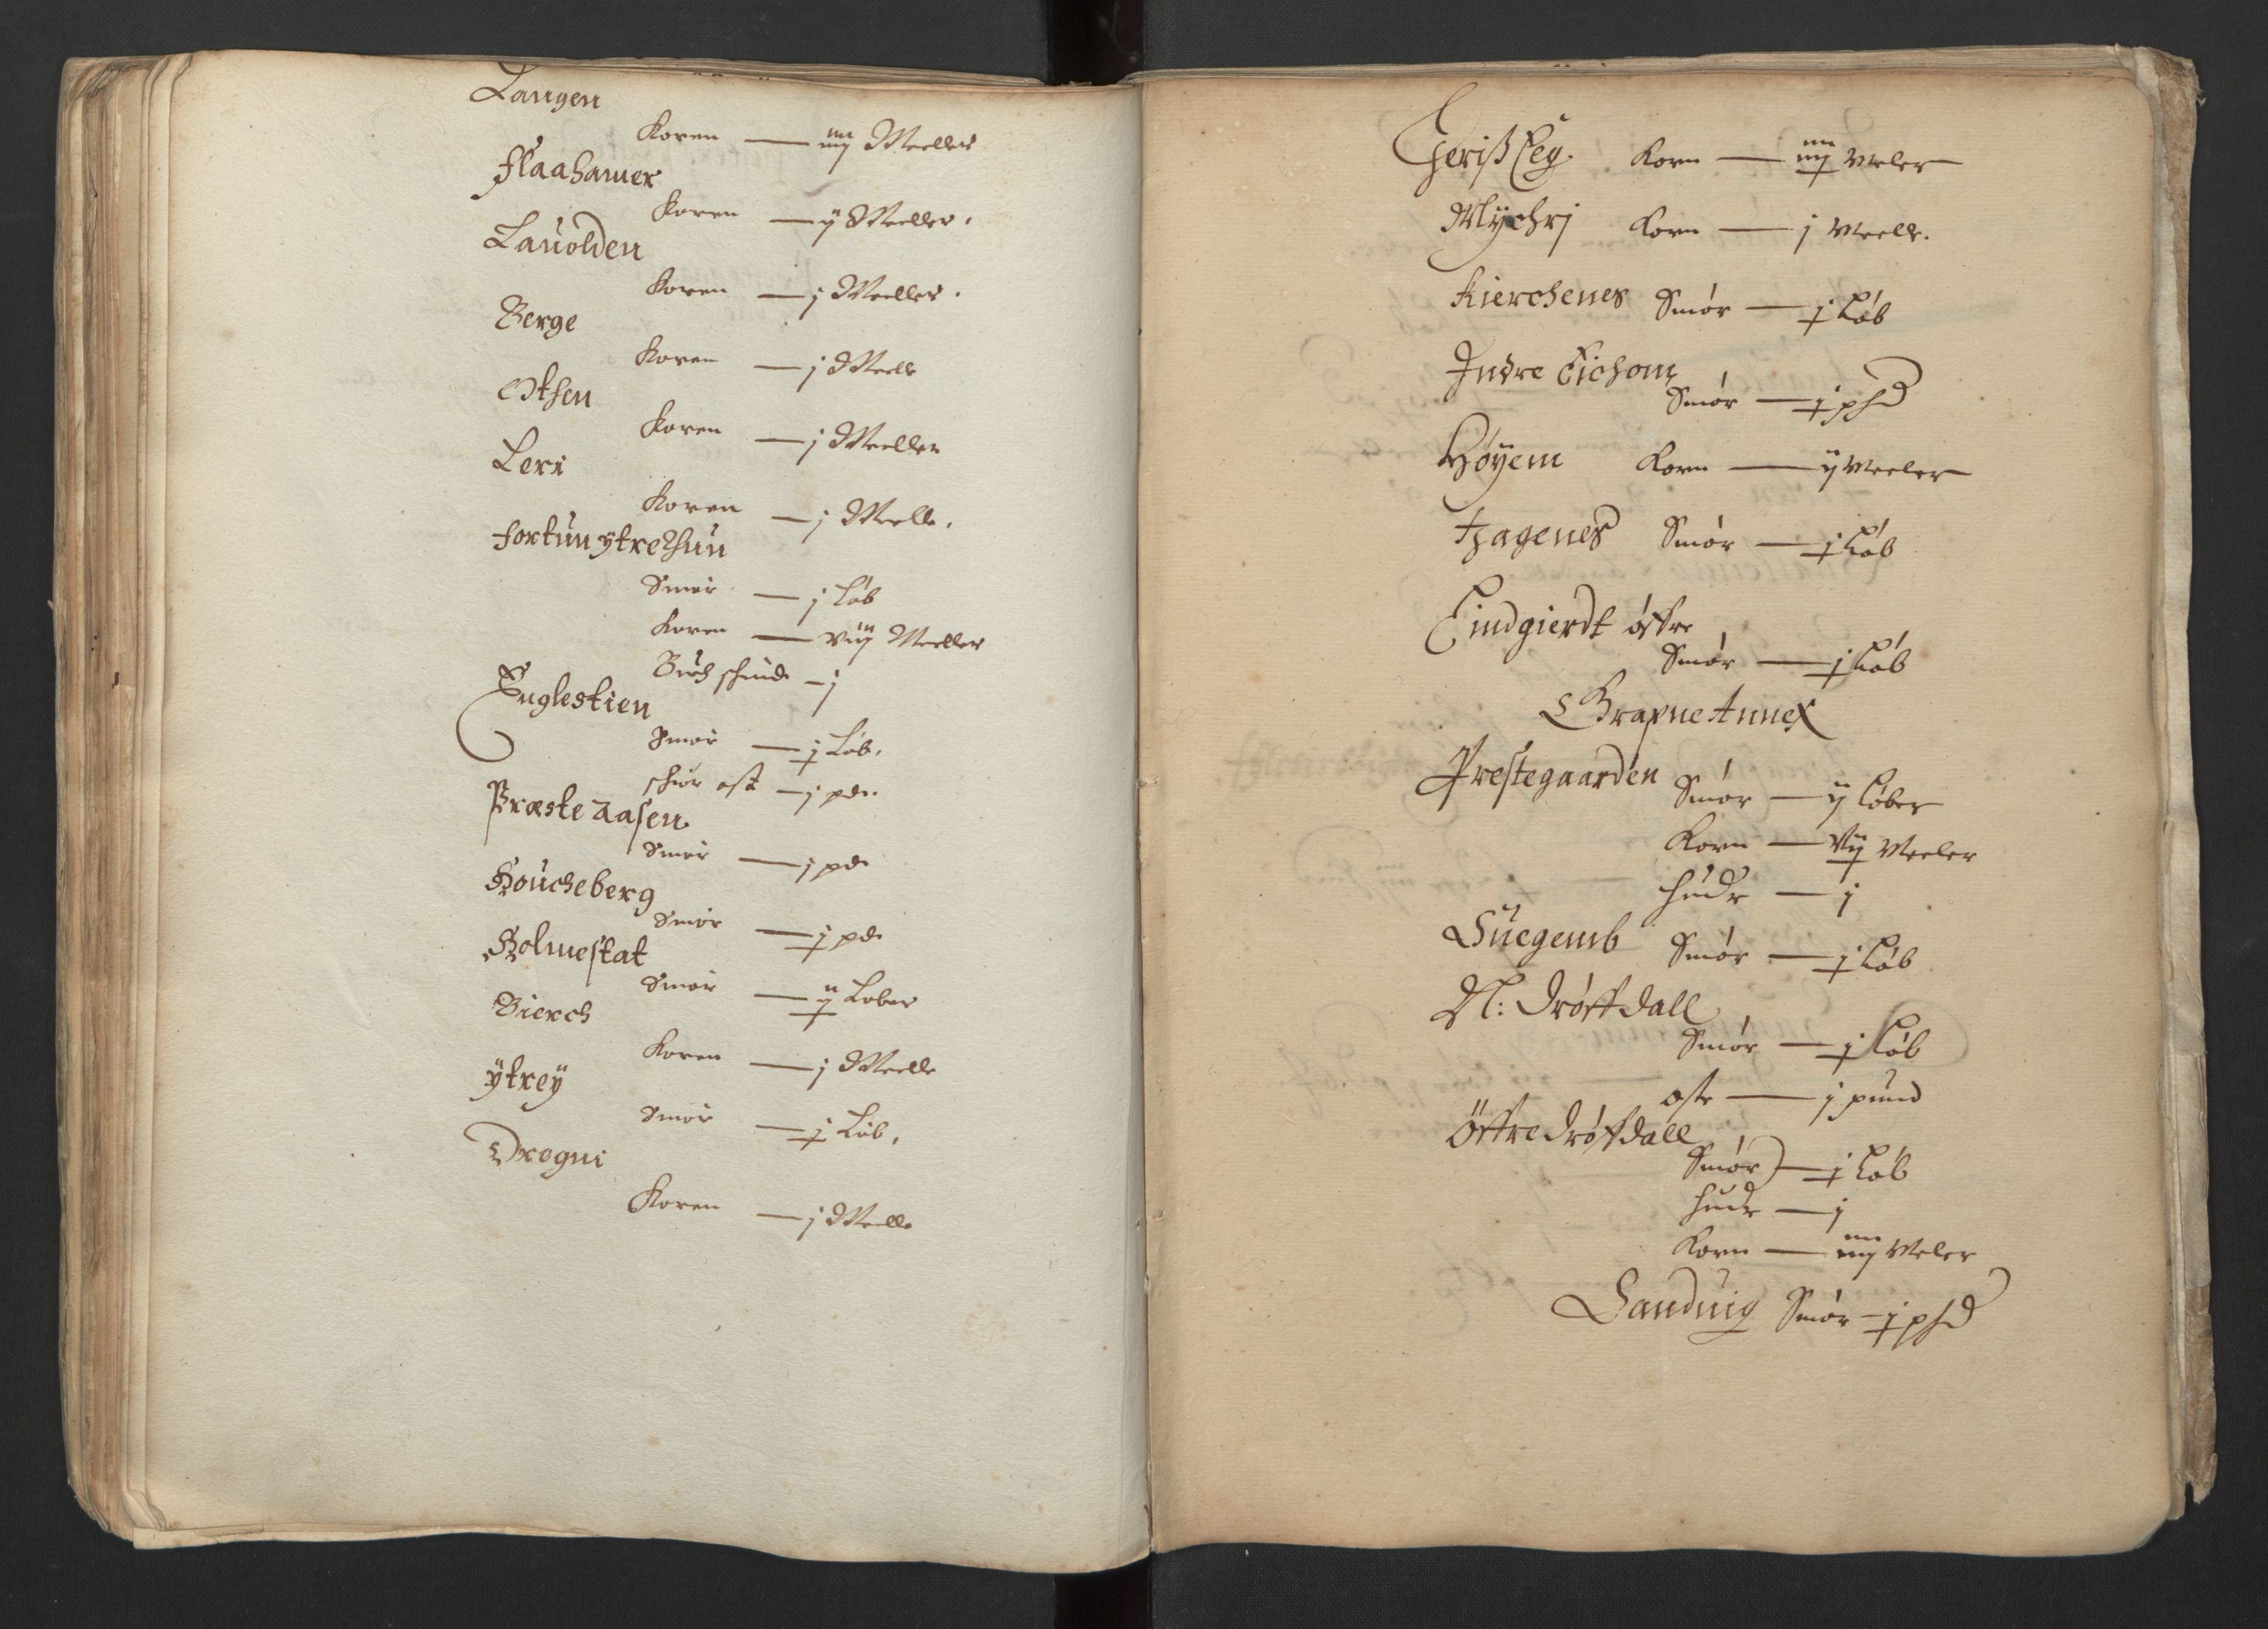 Langen
Koren — iiij Meeller
Flaahamer
Koren — ij Meeller.
Lauolden
Koren — j Meeller.
Berge
Koren — j Meelle
Otsen
Koren — j Meeller
Leri
Koren — j Meelle.
Fortun ytrethun
Smør — j Løb
Koren — viij Meeller
Buch schind — j
Englestien
Smør — j Løb.
schiør ost — j pd.
Præste aasen
Smør — j pd
Houcheberg
Smør — j pd
Holmestat
Smør — ij Løber
Bierch
Koren — j Meelle
ÿtreÿ
Smør — j Løb.
Drogni
Koren — j Meelle
Korn — iiij Meler
Korn — j Meell.
Kierchenes Smør — j Løb
Indre Eichom
Smør — j pd
Høÿem Korn — ij Meeler
Hagenes Smør — j Løb
Lindgierdt øffre
Smør — j Løb
Grapne Annex
Prestegaarden Smør — ij Løber
Korn — vij Meeler
hude — j
Suegemb Smør — j Løb
N: Drøffdall
Smør — j Løb
oste — j pund
Öffre drøfdall
Smør — j Løb
hude — j
Korn — iiij Meler
Sanduig Smør — j pd